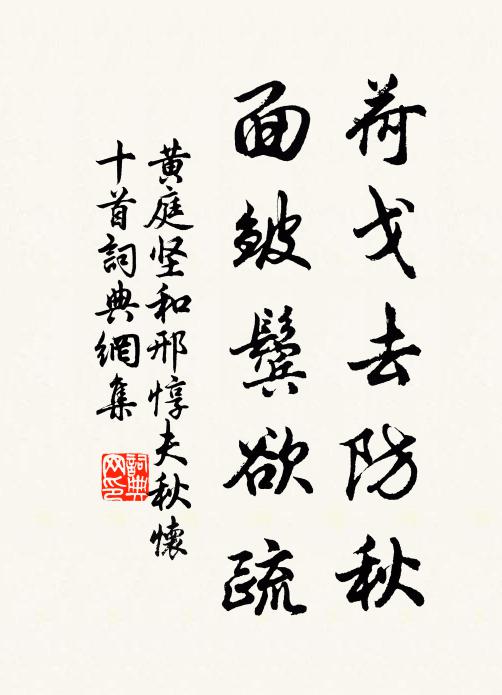 荷戈去防秋
面皴鬓欲疏
黄庭坚和邢惇夫秋懷
十首詞典網集
詞典
网印